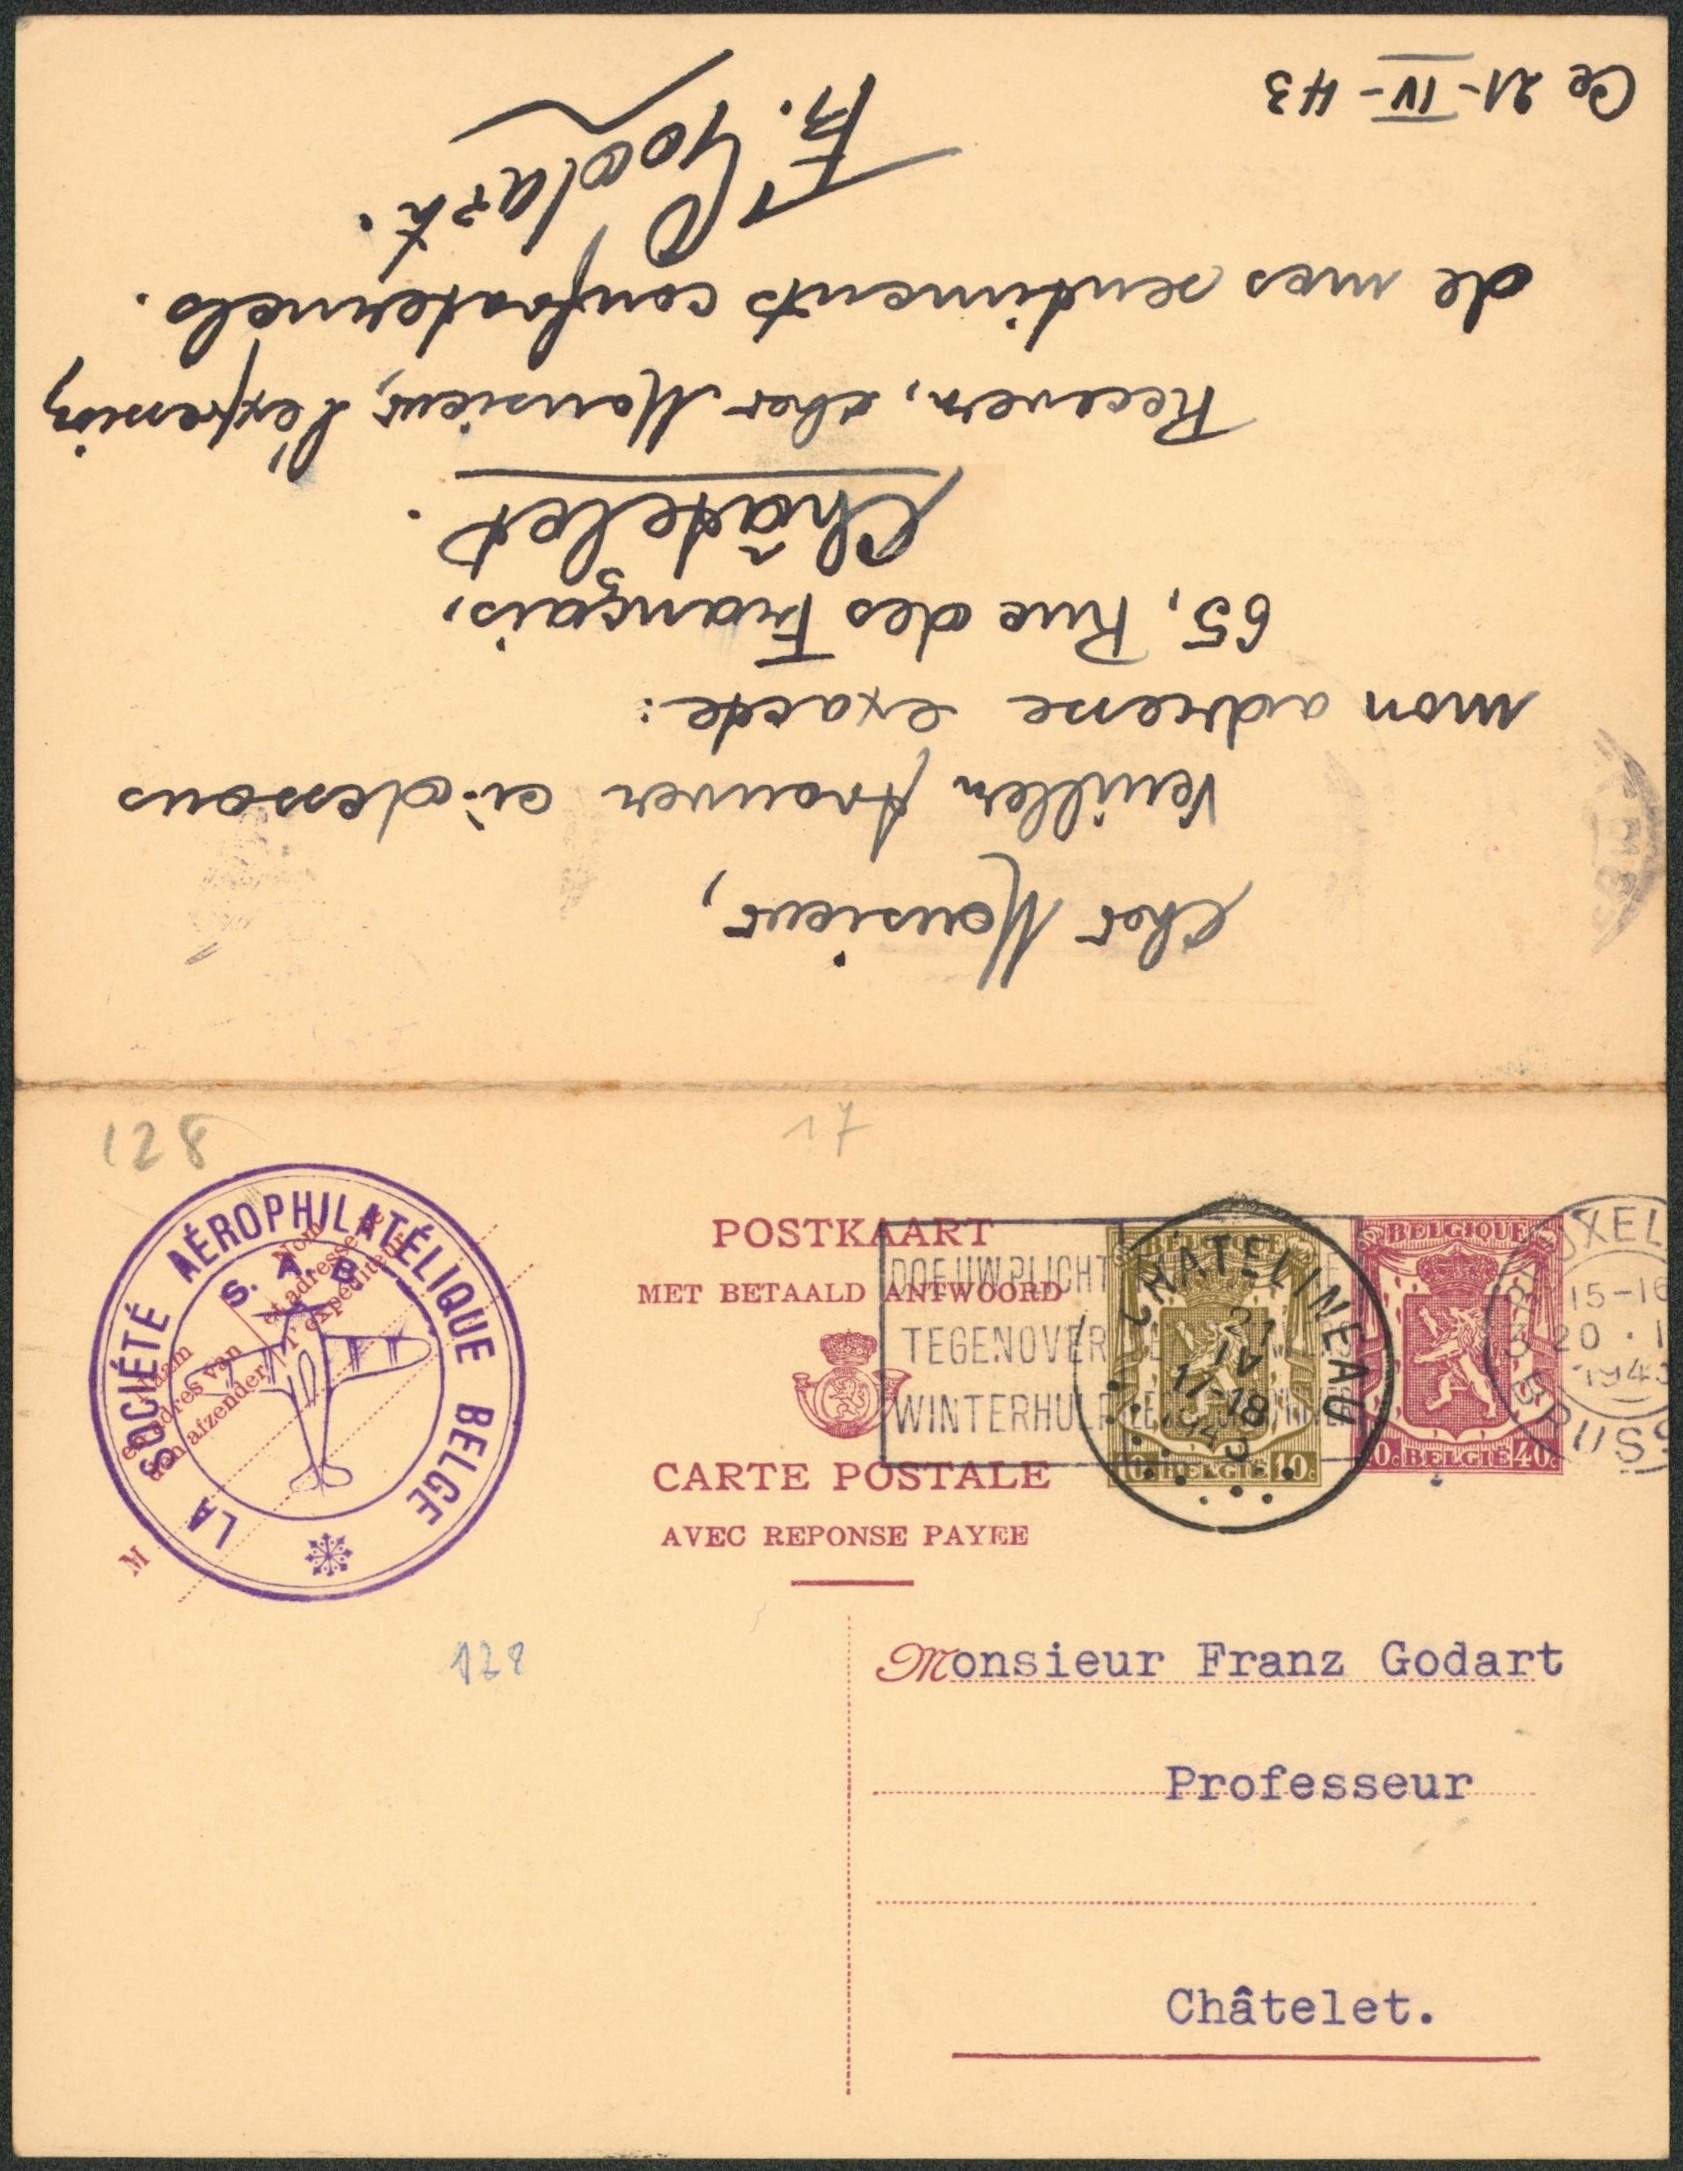 Ce 21-IV-43
Cher Monsieur,
Veuillez trouver ci-dessous
mon adresse exacte:
65, Rue des Français,
Châtelet.
Recevez, cher Monsieur, l'expression
de mes sentiments confraternels.
F. Godart.
128
17
LA SOCIÉTÉ AÉROPHILATÉLIQUE BELGE
S. A. B.
Nom
et adresse de
l'expéditeur
Naam
en adres van
den afzender
M
POSTKAART
MET BETAALD ANTWOORD
CARTE POSTALE
AVEC REPONSE PAYEE
DOE UW PLICHT
TEGENOVER
WINTERHULP
BELGIQUE
BELGIE 10c
CHATELINEAU
21
IV
17-18
1943
BELGIQUE
0c BELGIE 40c
UXEL
15-16
20 · I
1943
BRUSS
128
Monsieur Franz Godart
Professeur
Châtelet.